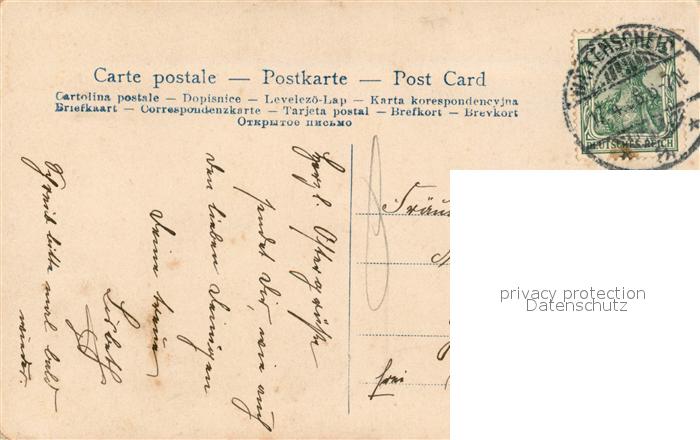 Carte postale — Postkarte — Post Card
Cartolina postale — Dopisnice — Levelező-Lap — Karta korespondencyjna
Briefkaart — Correspondenzkarte — Tarjeta postal — Brefkort — Brevkort
Открытое письмо
WATTENSCHEID
DEUTSCHES REICH
Herzl. Ostergrüße
sendet Dir, wie auch
den lieben Deinigen
Deine treue
Lisbeth
Schreib bitte mal bald
wieder.
frei
privacy protection
Datenschutz